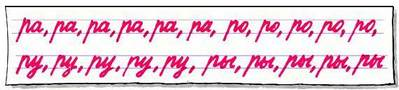 ра, ра, ра, ра, ра, ра, ро, ро, ро, ро, ро,
ру, ру, ру, ру, ру, ры, ры, ры, ры, ры